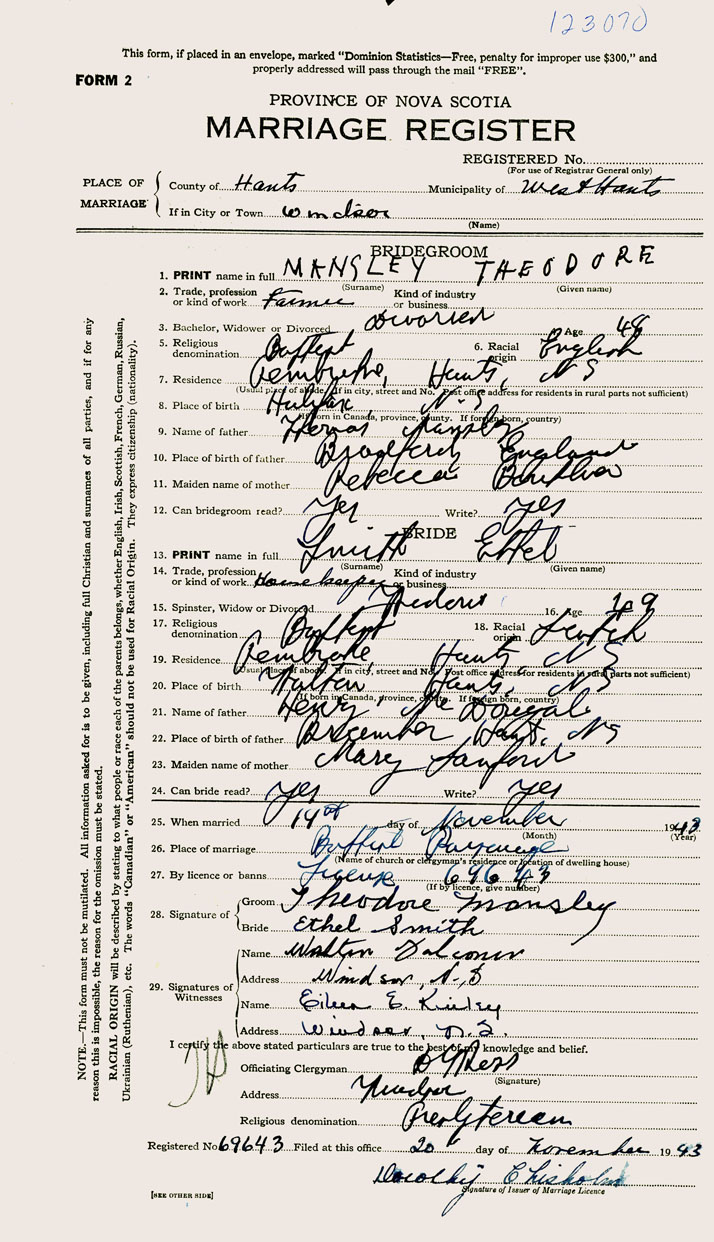 123070
This form, if placed in an envelope, marked “Dominion Statistics—Free, penalty for improper use $300,” and
properly addressed will pass through the mail “FREE”.
FORM 2
PROVINCE OF NOVA SCOTIA
MARRIAGE REGISTER
REGISTERED No.
(For use of Registrar General only)
PLACE OF MARRIAGE
County of Hants Municipality of West Hants
If in City or Town Windsor
(Name)
BRIDEGROOM
1. PRINT name in full MANSLEY THEODORE
(Surname) (Given name)
2. Trade, profession or kind of work Farmer Kind of industry or business
3. Bachelor, Widower or Divorced Divorced Age 48
5. Religious denomination Baptist 6. Racial origin English
7. Residence Pembroke, Hants, NS
(Usual place of abode. If in city, street and No. Post office address for residents in rural parts not sufficient)
8. Place of birth Halifax, N.S.
(If born in Canada, province, county. If foreign born, country)
9. Name of father Mansley
10. Place of birth of father England
11. Maiden name of mother Rebecca
12. Can bridegroom read? Yes Write? Yes
BRIDE
13. PRINT name in full Smith Ethel
(Surname) (Given name)
14. Trade, profession or kind of work Housekeeper Kind of industry or business
15. Spinster, Widow or Divorced 16. Age
17. Religious denomination Baptist 18. Racial origin Scotch
19. Residence Pembroke, Hants, NS
(Usual place of abode. If in city, street and No. Post office address for residents in rural parts not sufficient)
20. Place of birth Hants, NS
(If born in Canada, province, county. If foreign born, country)
21. Name of father Henry
22. Place of birth of father Hants, NS
23. Maiden name of mother Mary Sanford
24. Can bride read? Yes Write? Yes
25. When married 14th day of November 1943
(Month) (Year)
26. Place of marriage Baptist Parsonage
(Name of church or clergyman's residence or location of dwelling house)
27. By licence or banns License 69643
(If by licence, give number)
28. Signature of
Groom Theodore Mansley
Bride Ethel Smith
29. Signatures of Witnesses
Name Walter Falconer
Address Windsor, N.S
Name Eileen E. Kinley
Address Windsor, N.S.
I certify the above stated particulars are true to the best of my knowledge and belief.
Officiating Clergyman
(Signature)
Address Windsor
Religious denomination Presbyterian
Registered No. 69643 Filed at this office 20 day of November 1943
Dorothy Chisholm
Signature of Issuer of Marriage Licence
[SEE OTHER SIDE]
NOTE.—This form must not be mutilated. All information asked for is to be given, including full Christian and surnames of all parties, and if for any
reason this is impossible, the reason for the omission must be stated.
RACIAL ORIGIN will be described by stating to what people or race each of the parents belongs, whether English, Irish, Scottish, French, German, Russian,
Ukrainian (Ruthenian), etc. The words “Canadian” or “American” should not be used for Racial Origin. They express citizenship (nationality).